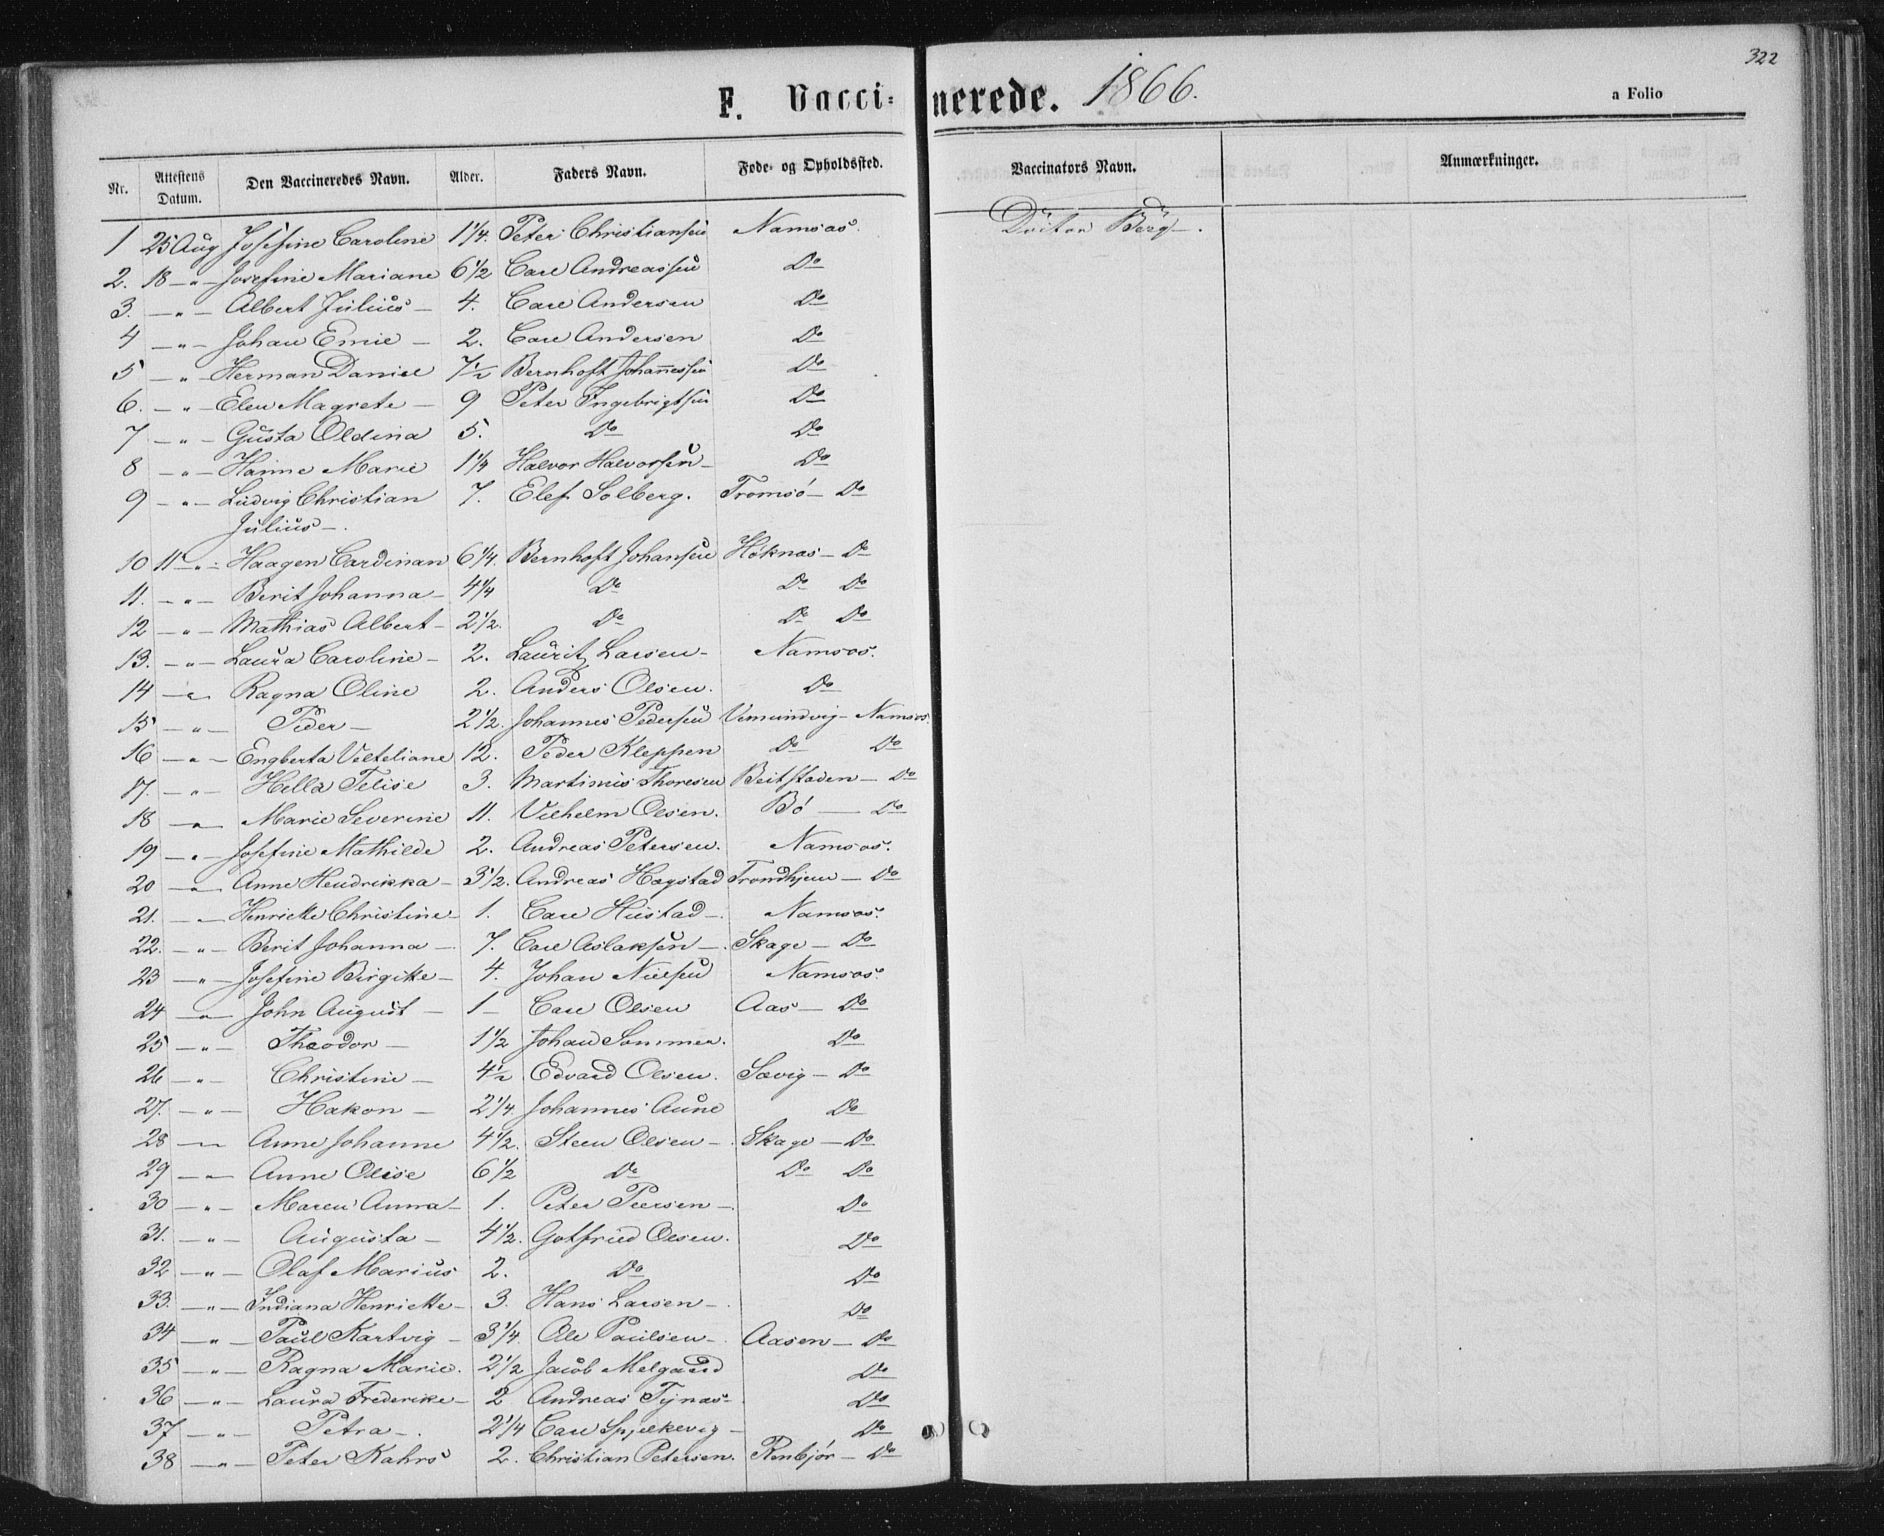 322
F. Vaccinerede. 1866.
a Folio
Nr. Attestens Datum. Den Vaccineredes Navn. Alder. Faders Navn. Føde- og Opholdssted. Vaccinators Navn. Anmærkninger.
1 25 Aug Josefine Caroline 1 1/4. Peter Christiansen Namsos. Doctor Berg.
2. 18 — " — Josefine Mariane 6 1/2 Carl Andreassen Do
3. — " — Albert Julius — 4. Carl Andersen Do
4 — " — Johan Emil — 2. Carl Andersen Do
5 — " — Herman Daniel 7 1/2 Bernhoft Johannessen Do
6. — " — Elen Magrete — 9 Peter Ingebrigtsen Do
7 — " — Gusta Oldina 5. Do Do
8 — " — Hanne Marie 1 1/4 Halvor Halvorsen — Do
9 — " — Ludvig Christian 7. Elef Solberg. Tromsó — Do
Julius —.
10 11 — " — Haagen Cardinan 6 1/4. Bernhoft Johansen Höknas — Do
11. — " — Berit Johanna — 4 1/4 Do Do Do
12 — " — Mathias Albert — 2 1/2. Do Do Do
13. — " — Laura Caroline — 2. Laurit Larsen — Namsos.
14 — " — Ragna Oline 2. Anders Olsen. Do
15 — " — Peder — 2 1/2. Johannes Pedersen Vemundvig — Namsos.
16 — " — Engberta Veteliane 12. Peder Kleppen Do Do
17. — " — Hella Telise 3. Martinus Thoresen Beitstaden — Do
18 — " — Marie Severine 11. Vilhelm Olsen. Bó — Do
19 — " — Josefine Mathilde 2. Andreas Petersen. Namsos.
20 — " — Anne Hendrikka — 3 1/2. Andreas Hogstad Trondhjem — Do
21. — " — Henriette Christine — 1. Carl Hustad —. Namsos.
22. — " — Berit Johanna — 7. Carl Aslaksen —. Skage — Do
23 — " — Josefine Birgitte — 4. Johan Nielsen Namsos.
24 — " — John August — 1 — Carl Olsen Aas — Do
25 — " — Theodor — 1 1/2 Johan Sommer. Do
26 — " — Christine — 4 1/2 Edvard Olsen. Sævig — Do
27. — " — Hakon — 2 1/4 Johannes Aune Do
28 — " — Anne Johanne 4 1/2. Steen Olsen —. Skage — Do
29 — " — Anne Olise 6 1/2 Do Do Do
30 — " — Maren Anna — 1. Peter Peersen —. Do
31. — " — Augusta — 4 1/2. Gotfried Olsen. Do
32 — " — Olaf Marius 2. Do Do
33. — " — Indiana Henriette — 3. Hans Larsen —. Do
34 — " — Paul Hartvig — 3 1/4. Ole Paulsen —. Aasen — Do
35 — " — Ragna Marie. 2 1/2 Jacob Melgaard Do
36 — " — Laura Frederike — 2 Andreas Tynas — Do
37 — " — Petra —. 2 1/4 Carl Spjelkevig — Do
38 — " — Peter Kahrs 2. Christian Petersen. Renbjør — Do